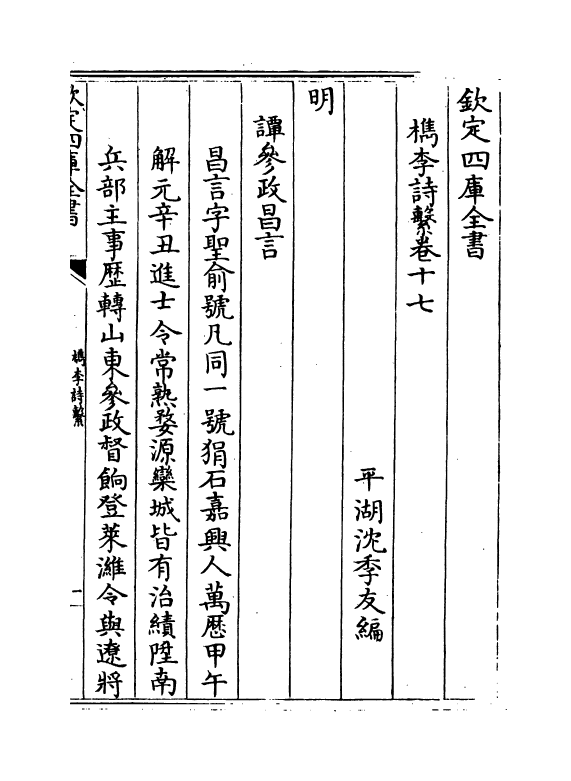 欽定四庫全書
檇李詩繫卷十七
平湖沈季友編
明
譚參政昌言
昌言字聖俞號凡同一號狷石嘉興人萬厯甲午
解元辛丑進士令常熟婺源欒城皆有治績陞南
兵部主事歴轉山東參政督餉登萊濰令與遼將
欽定四庫全書
檇李詩繫
二